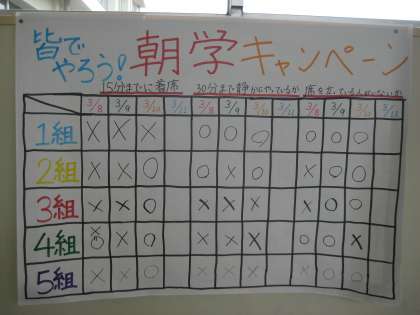 皆で
やろう！朝学キャンペーン
15分までに着席 30分まで静かにやっているか 席を立っている人がいないか
3/8 3/9 3/10 3/11 3/8 3/9 3/10 3/11 3/8 3/9 3/10 3/11
1組 × × × ○ ○ ○ ○ ○ ○
2組 × × ○ ○ × ○ × ○ ○
3組 × × ○ × × × × ○ ○
4組 × ○ × × × ○ ○ ×
5組 × × ○ × × × × ○ ○